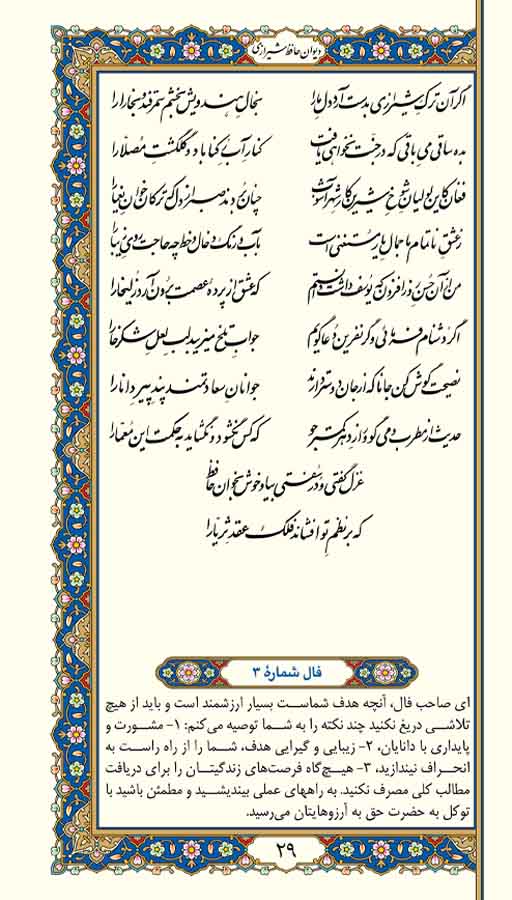 دیوان حافظ شیرازی
اگر آن ترک شیرازی بدست آرد دل ما را بخال هندویش بخشم سمرقند و بخارا را
بده ساقی می باقی که در جنت نخواهی یافت کنار آب رکناباد و گلگشت مصلا را
فغان کاین لولیان شوخ شیرین کار شهر آشوب چنان بردند صبر از دل که ترکان خوان یغما را
ز عشق ناتمام ما جمال یار مستغنی است بآب و رنگ و خال و خط چه حاجت روی زیبا را
من از آن حسن روز افزون که یوسف داشت دانستم که عشق از پرده عصمت برون آرد زلیخا را
اگر دشنام فرمائی و گر نفرین دعا گویم جواب تلخ میزیبد لب لعل شکرخا را
نصیحت گوش کن جانا که از جان دوستتر دارند جوانان سعادتمند پند پیر دانا را
حدیث از مطرب و می گو و راز دهر کمتر جو که کس نگشود و نگشاید به حکمت این معما را
غزل گفتی و در سفتی بیا و خوش بخوان حافظ
که بر نظم تو افشاند فلک عقد ثریا را
فال شمارهٔ ۳
ای صاحب فال، آنچه هدف شماست بسیار ارزشمند است و باید از هیچ
تلاشی دریغ نکنید چند نکته را به شما توصیه می‌کنم: ۱- مشورت و
پایداری با دانایان، ۲- زیبایی و گیرایی هدف، شما را از راه راست به
انحراف نیندازید، ۳- هیچ‌گاه فرصت‌های زندگیتان را برای دریافت
مطالب کلی مصرف نکنید. به راههای عملی بیندیشید و مطمئن باشید با
توکل به حضرت حق به آرزوهایتان می‌رسید.
۲۹